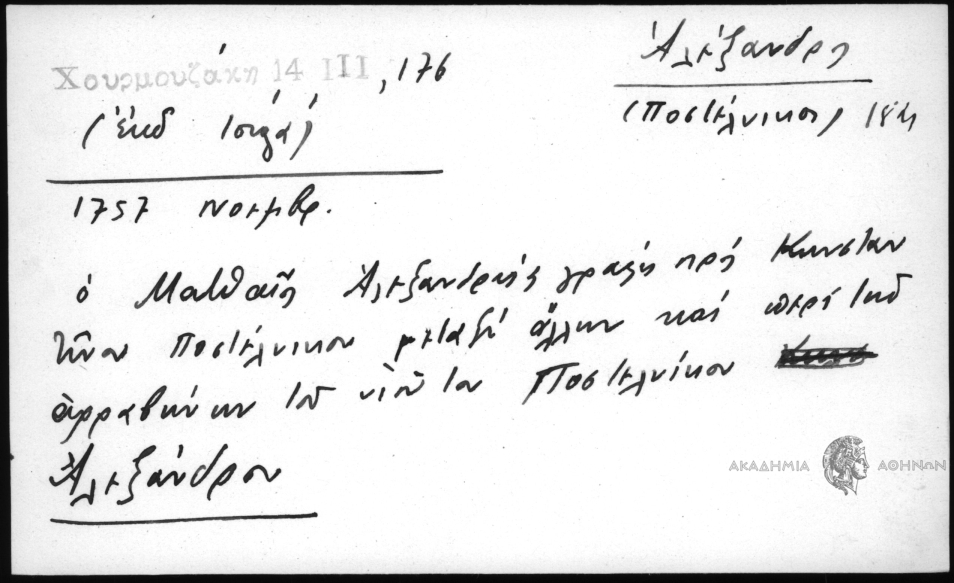 Χουρμουζάκη 14 III, 176
Ἀλεξανδρ
(Ποστέλνικος)
(ἐκδ
1757 Νοεμβρ.
ὁ Ματθαῖος Ἀλεξανδρείας γράφει πρὸς Κωνσταν
τῖνον Ποστέλνικον μεταξὺ ἄλλων καὶ περὶ τοῦ
ἀρραβώνων τοῦ υἱοῦ του Ποστελνίκου
Ἀλεξάνδρου
ΑΚΑΔΗΜΙΑ ΑΘΗΝΩΝ